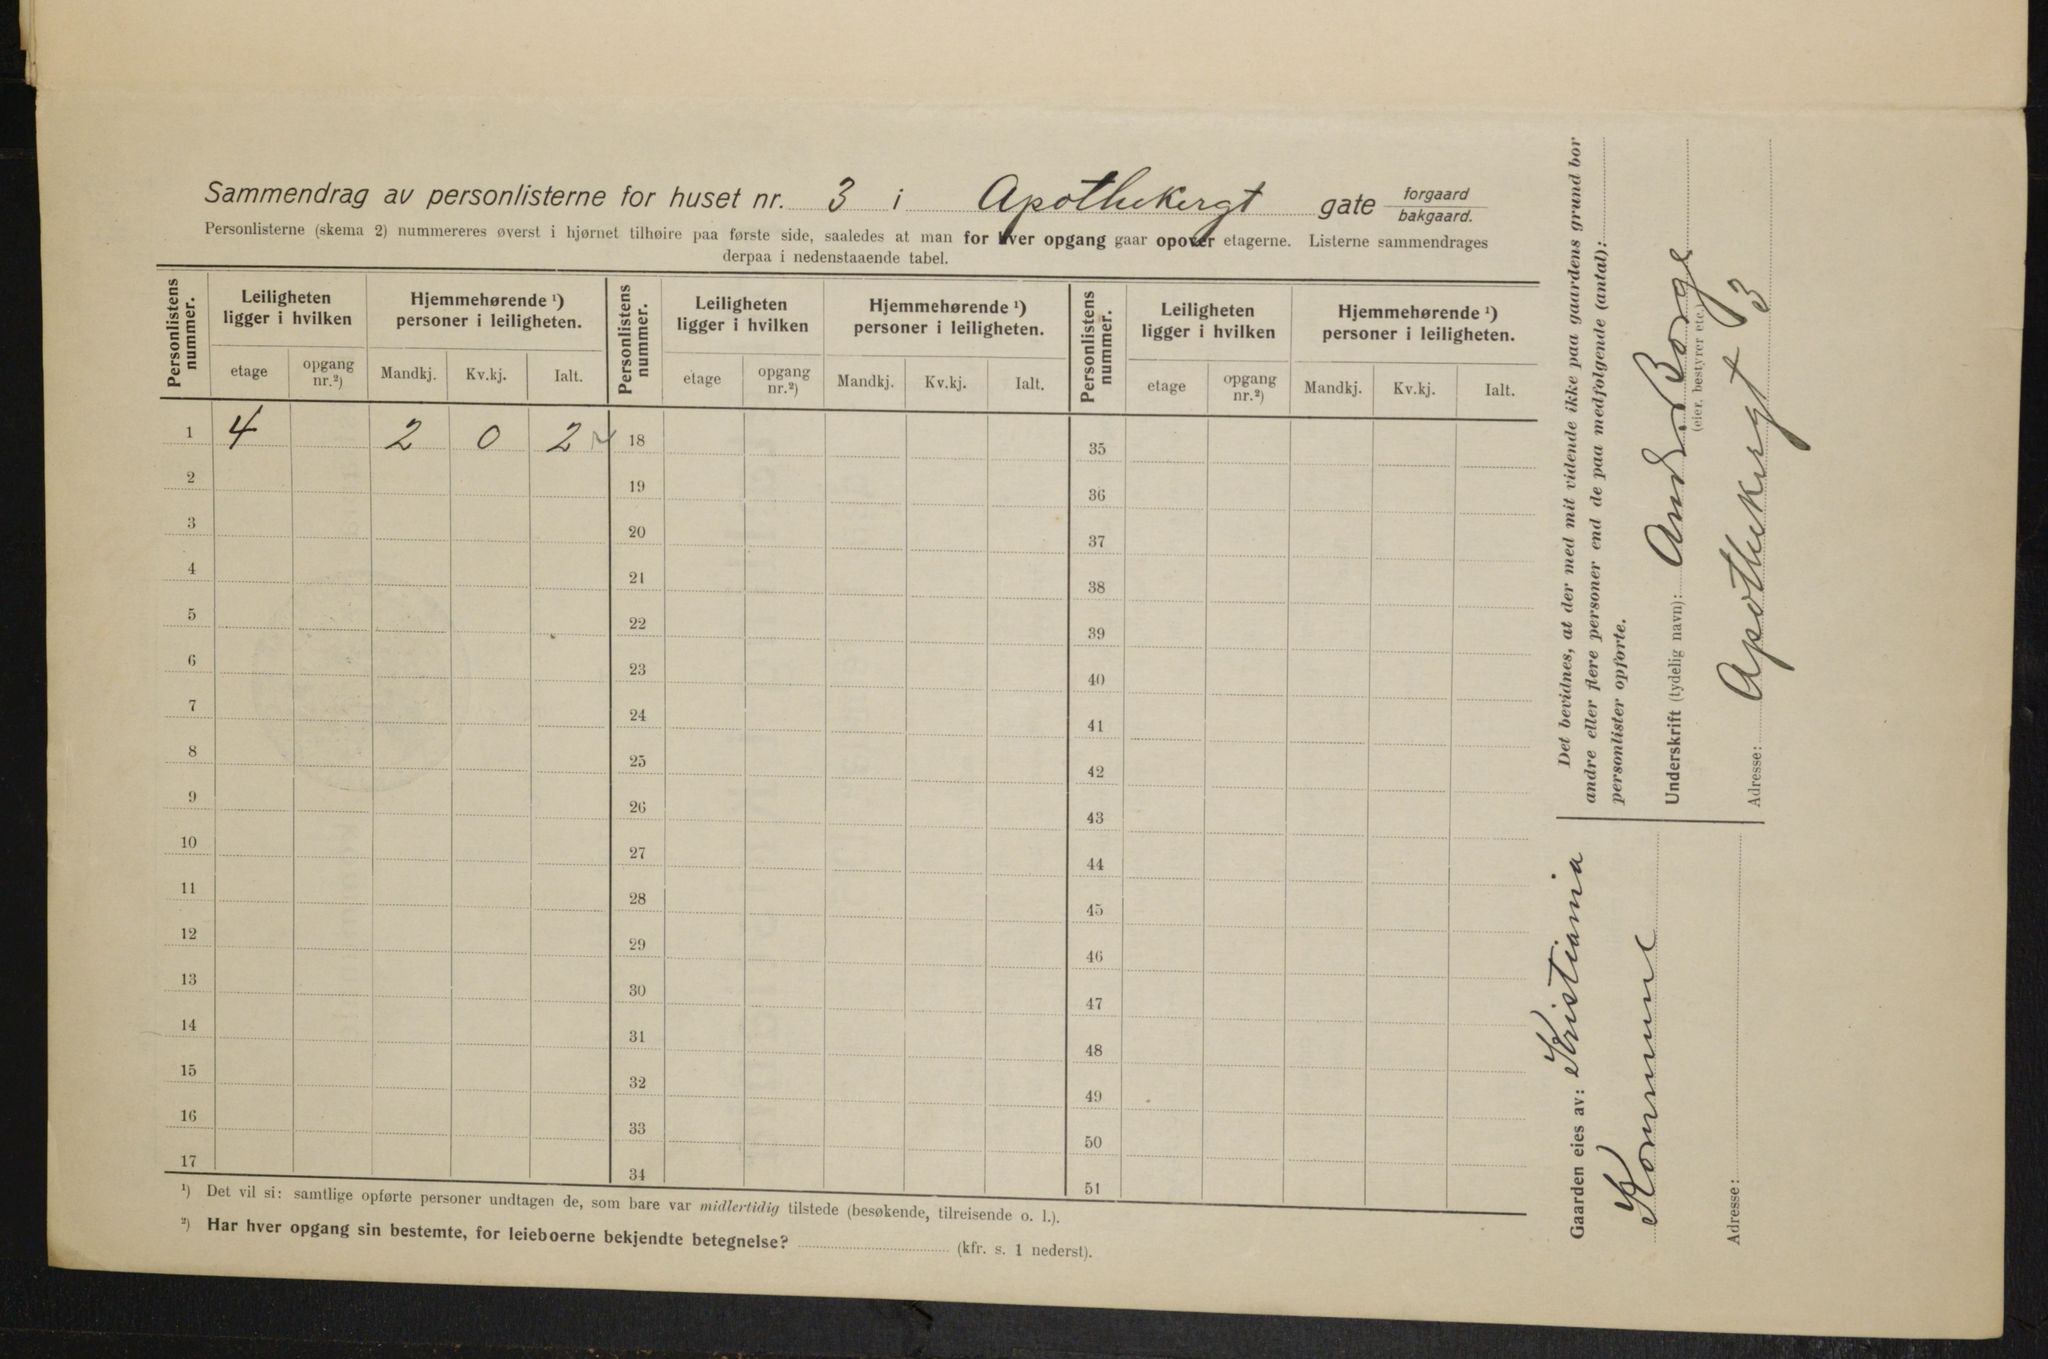 Sammendrag av personlisterne for huset nr. 3 i Apothekergt gate forgaard bakgaard.
Personlisterne (skema 2) nummereres øverst i hjørnet tilhøire paa første side, saaledes at man for hver opgang gaar opover etagerne. Listerne sammendrages
derpaa i nedenstaaende tabel.
Personlistens nummer. Leiligheten ligger i hvilken Hjemmehørende ¹) personer i leiligheten. Personlistens nummer. Leiligheten ligger i hvilken Hjemmehørende ¹) personer i leiligheten. Personlistens nummer. Leiligheten ligger i hvilken Hjemmehørende ¹) personer i leiligheten.
etage opgang nr.²) Mandkj. Kv.kj. Ialt. etage opgang nr.²) Mandkj. Kv.kj. Ialt. etage opgang nr.²) Mandkj. Kv.kj. Ialt.
1 4 2 0 2 18 35
2 19 36
3 20 37
4 21 38
5 22 39
6 23 40
7 24 41
8 25 42
9 26 43
10 27 44
11 28 45
12 29 46
13 30 47
14 31 48
15 32 49
16 33 50
17 34 51
¹) Det vil si: samtlige opførte personer undtagen de, som bare var midlertidig tilstede (besøkende, tilreisende o. l.).
²) Har hver opgang sin bestemte, for leieboerne bekjendte betegnelse? (kfr. s. 1 nederst).
Det bevidnes, at der med mit vidende ikke paa gaardens grund bor
andre eller flere personer end de paa medfølgende (antal):
personlister opførte.
Underskrift (tydelig navn): And. Borge
(eier, bestyrer etc.)
Adresse: Apothekergt 3
Gaarden eies av: Kristiania
Kommune
Adresse: